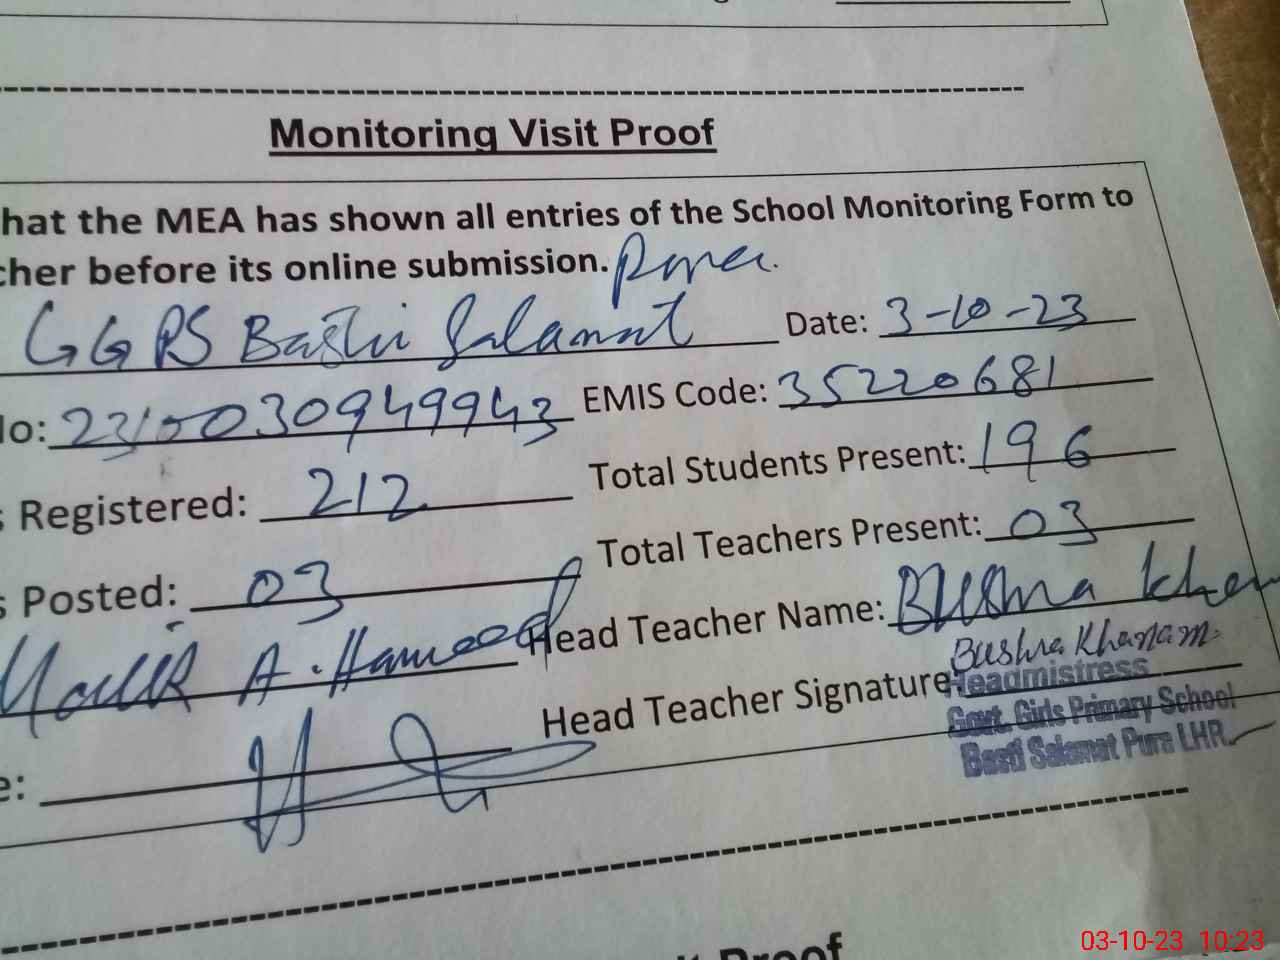 Monitoring Visit Proof
hat the MEA has shown all entries of the School Monitoring Form to
cher before its online submission.
GGPS Basti Salamat Pura Date: 3-10-23
No: EMIS Code: 35220681
s Registered: 212 Total Students Present: 196
s Posted: 03 Total Teachers Present: 03
Malik A. Hameed Head Teacher Name: Bushra Khan
e: Head Teacher Signature: Bushra Khanam
Headmistress
Govt. Girls Primary School
Basti Salamat Pura LHR.
it Proof
03-10-23 10:23